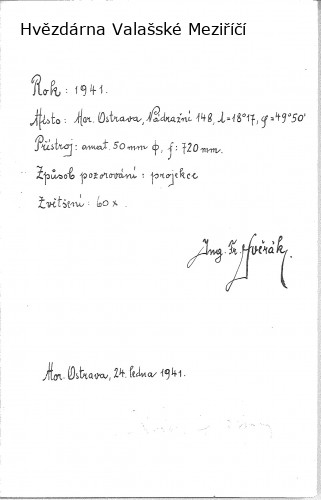 Hvězdárna Valašské Meziříčí
Rok: 1941.
Místo: Mor. Ostrava, Nádražní 148, λ=18°17, φ=49°50'
Přístroj: amat. 50 mm φ, f: 720 mm.
Způsob pozorování: projekce
Zvětšení: 60 x.
Ing. Fr. Dvořák.
Mor. Ostrava, 24. ledna 1941.